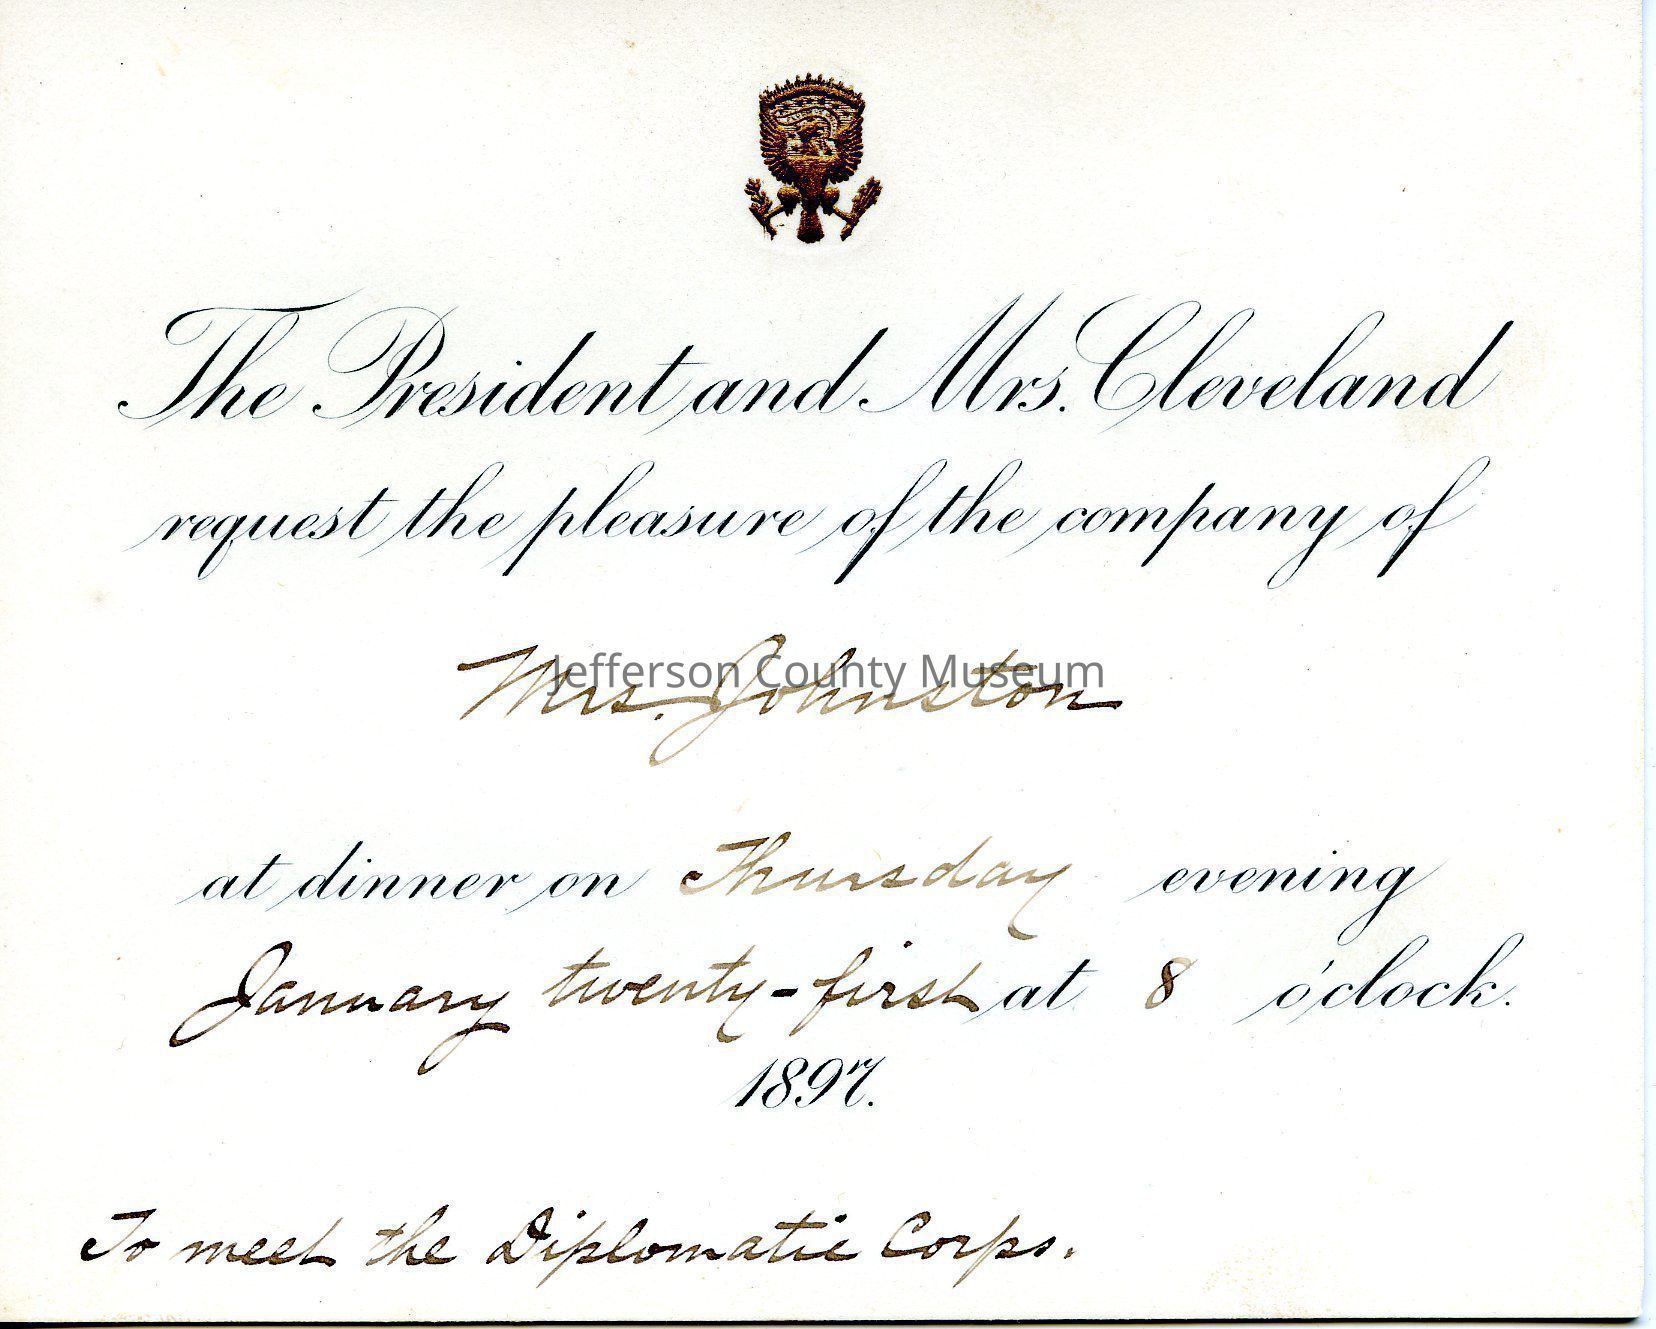 The President and Mrs. Cleveland
request the pleasure of the company of
Mrs. Johnston
Jefferson County Museum
at dinner on Thursday evening
January twenty-first at 8 o'clock.
1897.
To meet the Diplomatic Corps.